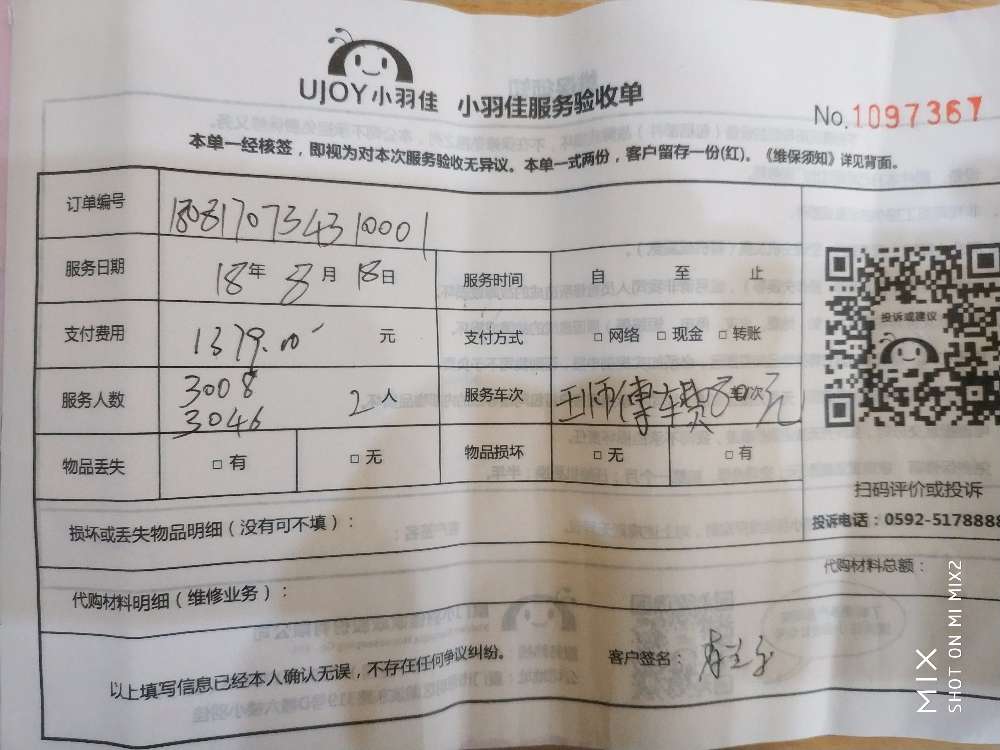 UJOY小羽佳 小羽佳服务验收单
No.1097367
本单一经核签，即视为对本次服务验收无异议。本单一式两份，客户留存一份(红)。《维保须知》详见背面。
订单编号 1808170734310001
服务日期 18年 8月 18日 服务时间 自 至 止
支付费用 1379.00 元 支付方式 □ 网络 □ 现金 □ 转账
服务人数 3008 2人 服务车次 王师傅车费80元
3046
物品丢失 □ 有 □ 无 物品损坏 □ 无 □ 有
投诉或建议
扫码评价或投诉
投诉电话：0592-5178888
损坏或丢失物品明细（没有可不填）：
代购材料明细（维修业务）： 代购材料总额：
以上填写信息已经本人确认无误，不存在任何争议纠纷。 客户签名：
MIX
SHOT ON MI MIX2